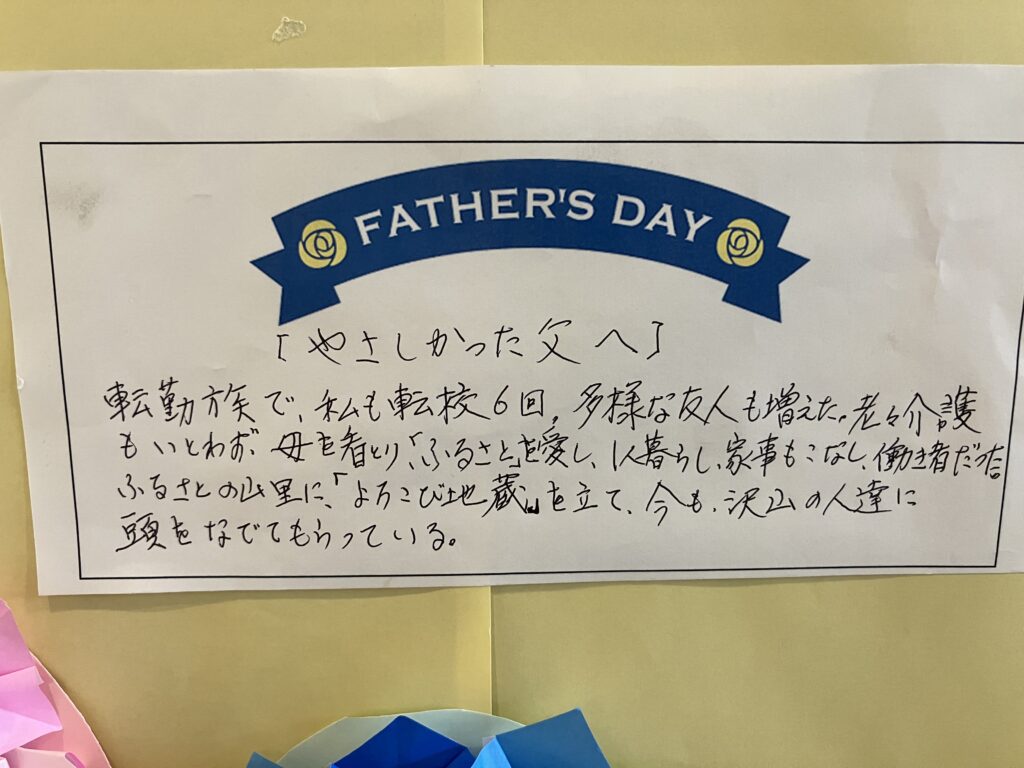 FATHER'S DAY
[やさしかった父へ]
転勤族で、私も転校6回。多様な友人も増えた。老々介護
もいとわず、母を看とり、「ふるさと」を愛し、1人暮らし、家事もこなし、働き者だった。
ふるさとの山里に、「よろこび地蔵」を立て、今も、沢山の人達に
頭をなでてもらっている。